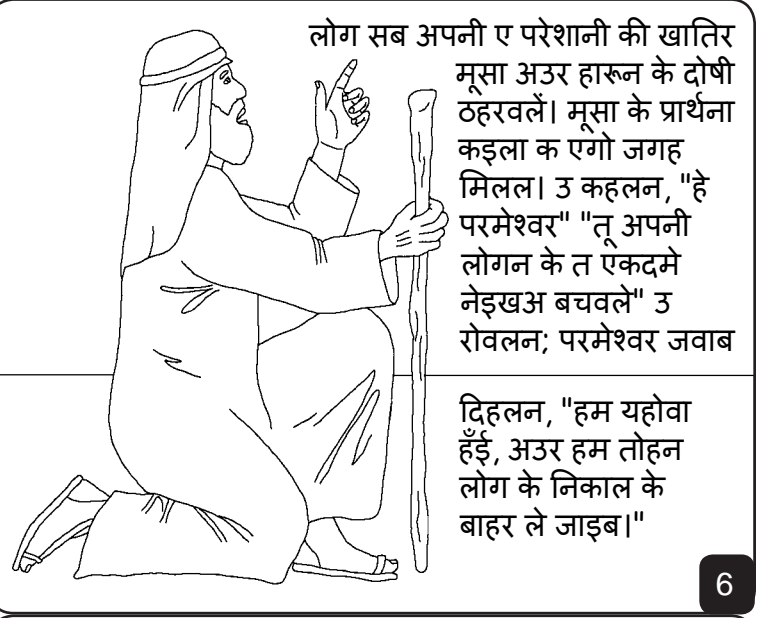 लोग सब अपनी ए परेशानी की खातिर
मूसा अउर हारून के दोषी
ठहरवलें। मूसा के प्रार्थना
कइला क एगो जगह
मिलल। उ कहलन, "हे
परमेश्वर" "तू अपनी
लोगन के त एकदमे
नेइखअ बचवले" उ
रोवलन; परमेश्वर जवाब
दिहलन, "हम यहोवा
हँई, अउर हम तोहन
लोग के निकाल के
बाहर ले जाइब।"
6